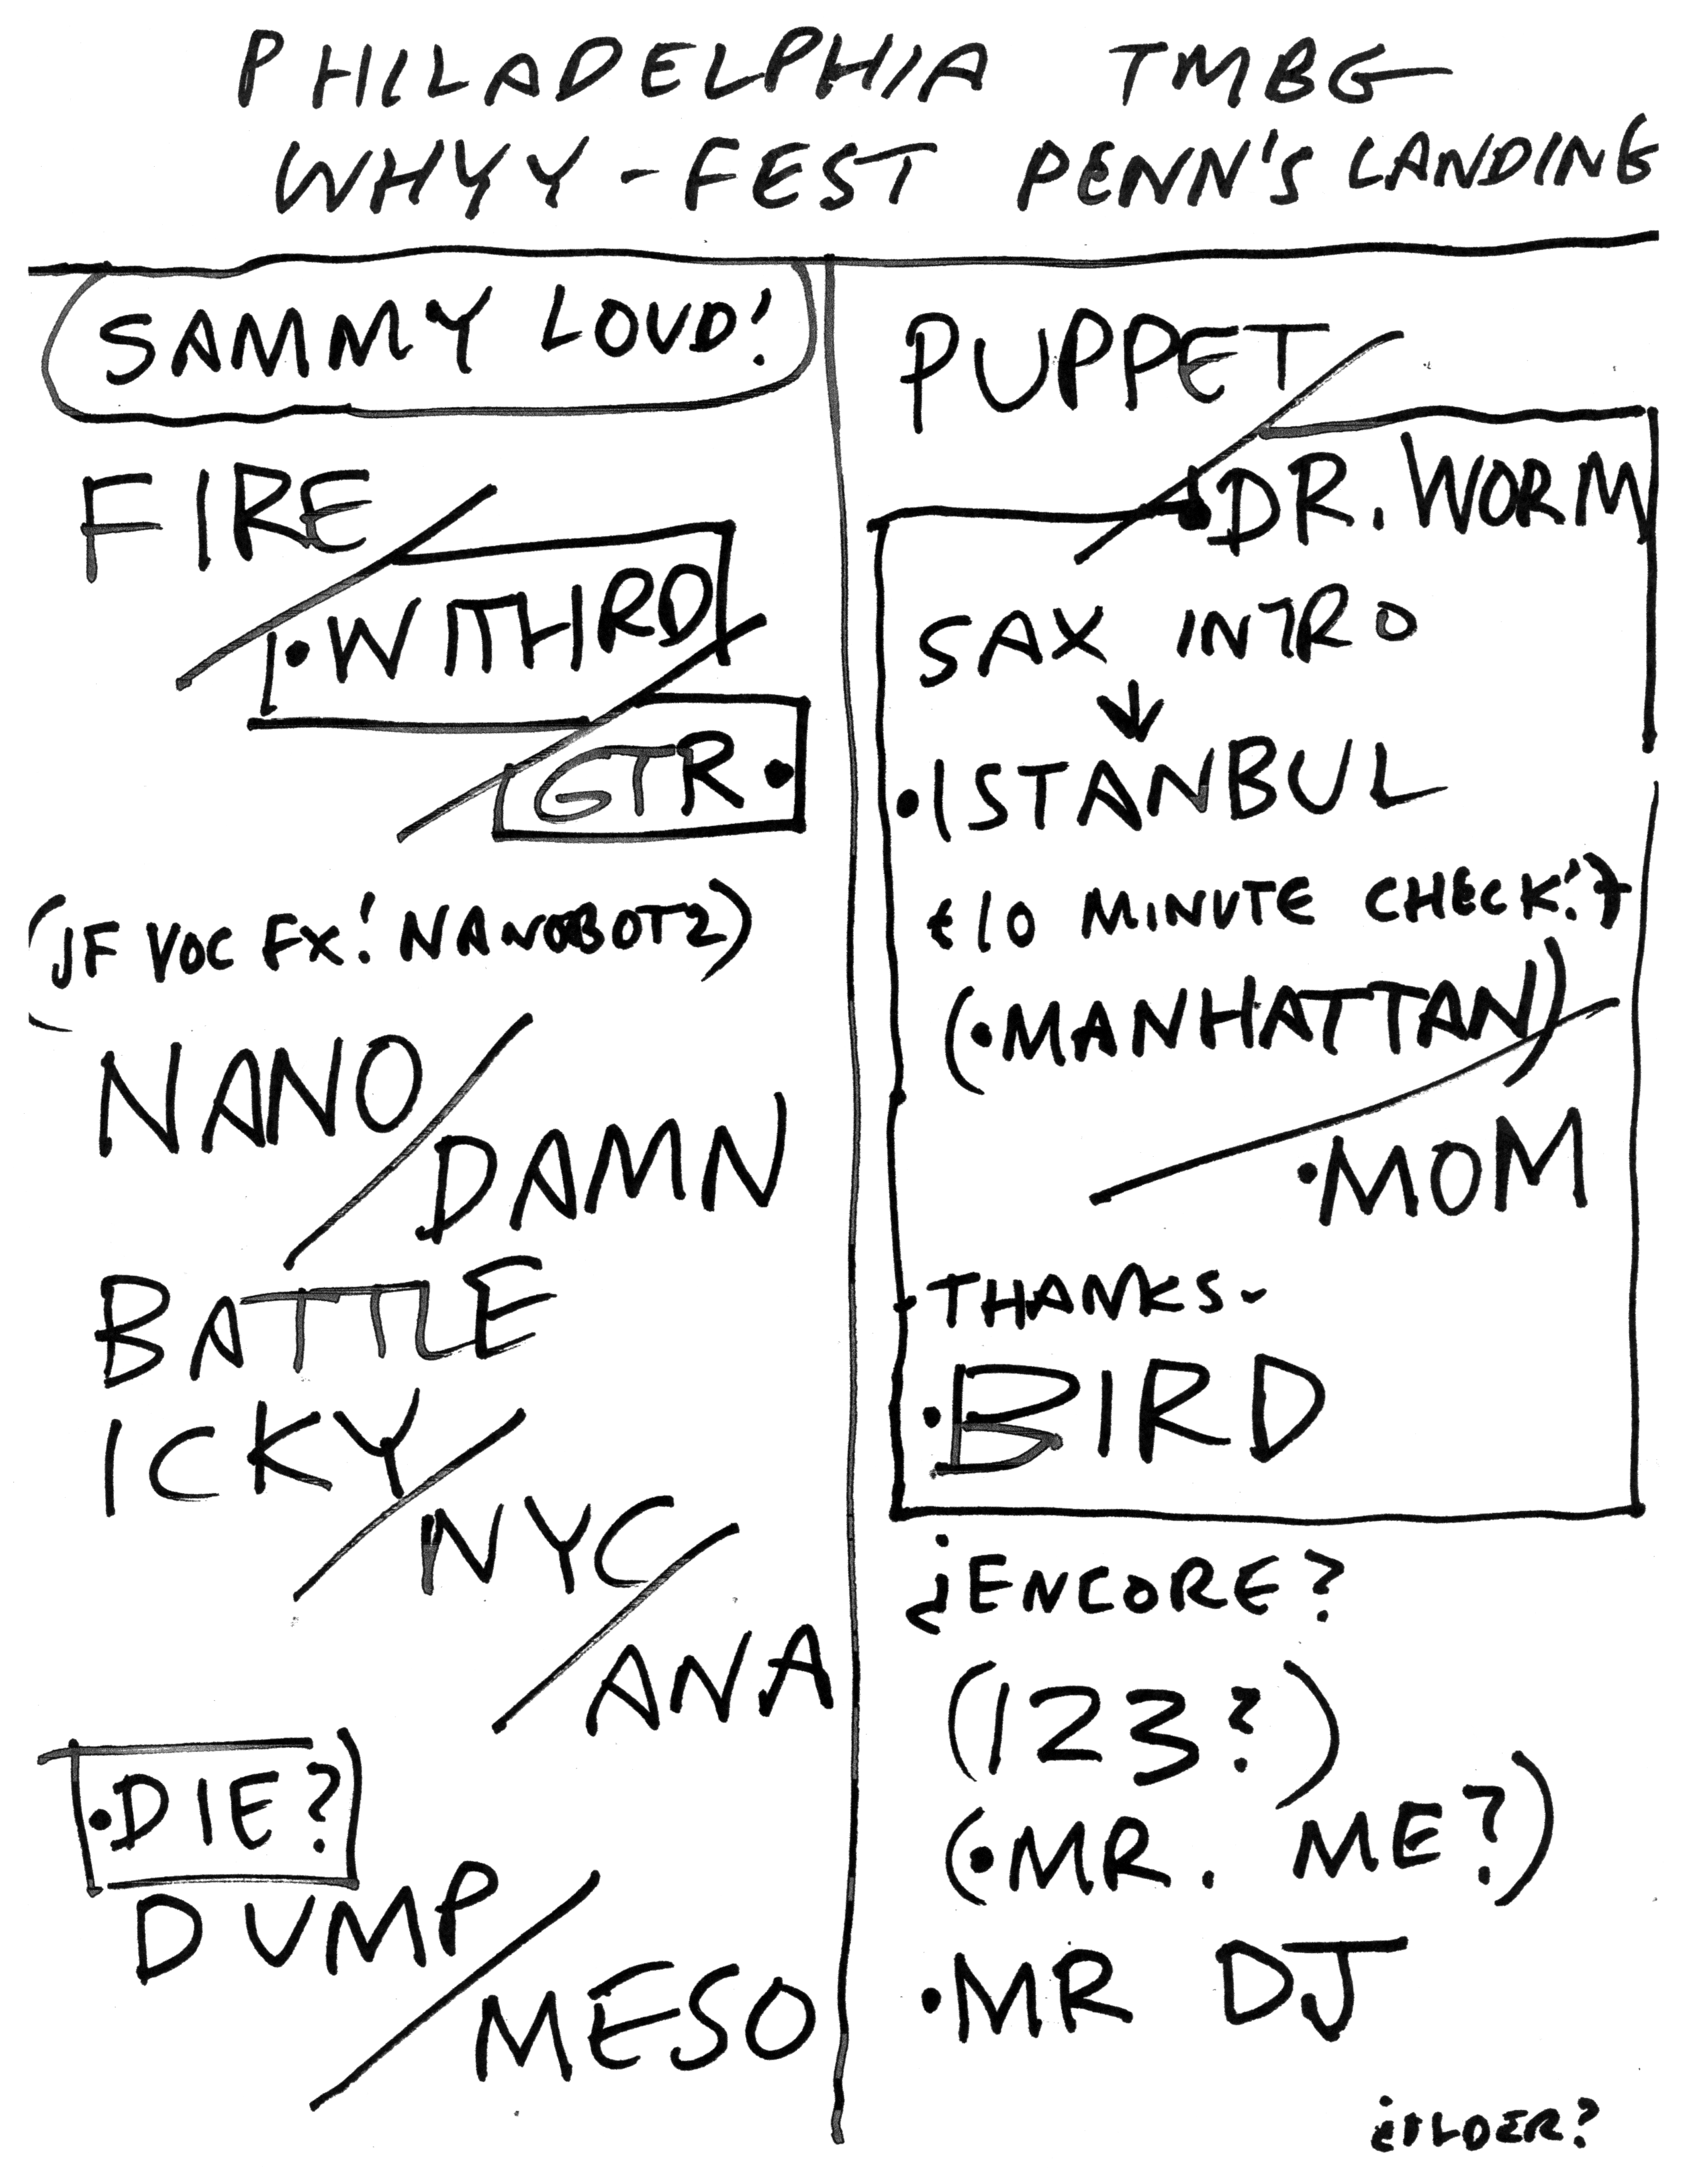 PHILADELPHIA TMBG
WHYY-FEST PENN'S LANDING
SAMMY LOUD!
FIRE
•WITHRD
GTR•
(JF VOC FX! NANOBOT2)
NANO
DAMN
BATTLE
ICKY
NYC
ANA
•DIE?
DUMP
MESO
PUPPET
•DR. WORM
SAX INTRO
↓
•ISTANBUL
{10 MINUTE CHECK!}
(•MANHATTAN)
•MOM
THANKS-
•BIRD
¿ENCORE?
(123?)
(•MR. ME?)
•MR DJ